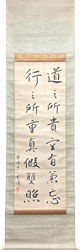 道之所貴空有兼忘
行之所重真假雙照